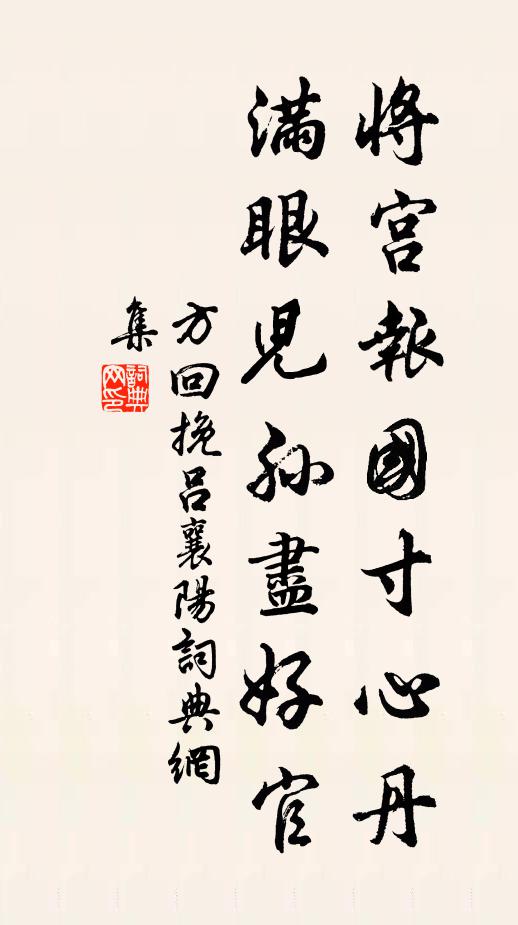 將宮報國寸心丹
滿眼児孫盡好官
方回挽呂襄陽詞典網
集
詞典网印